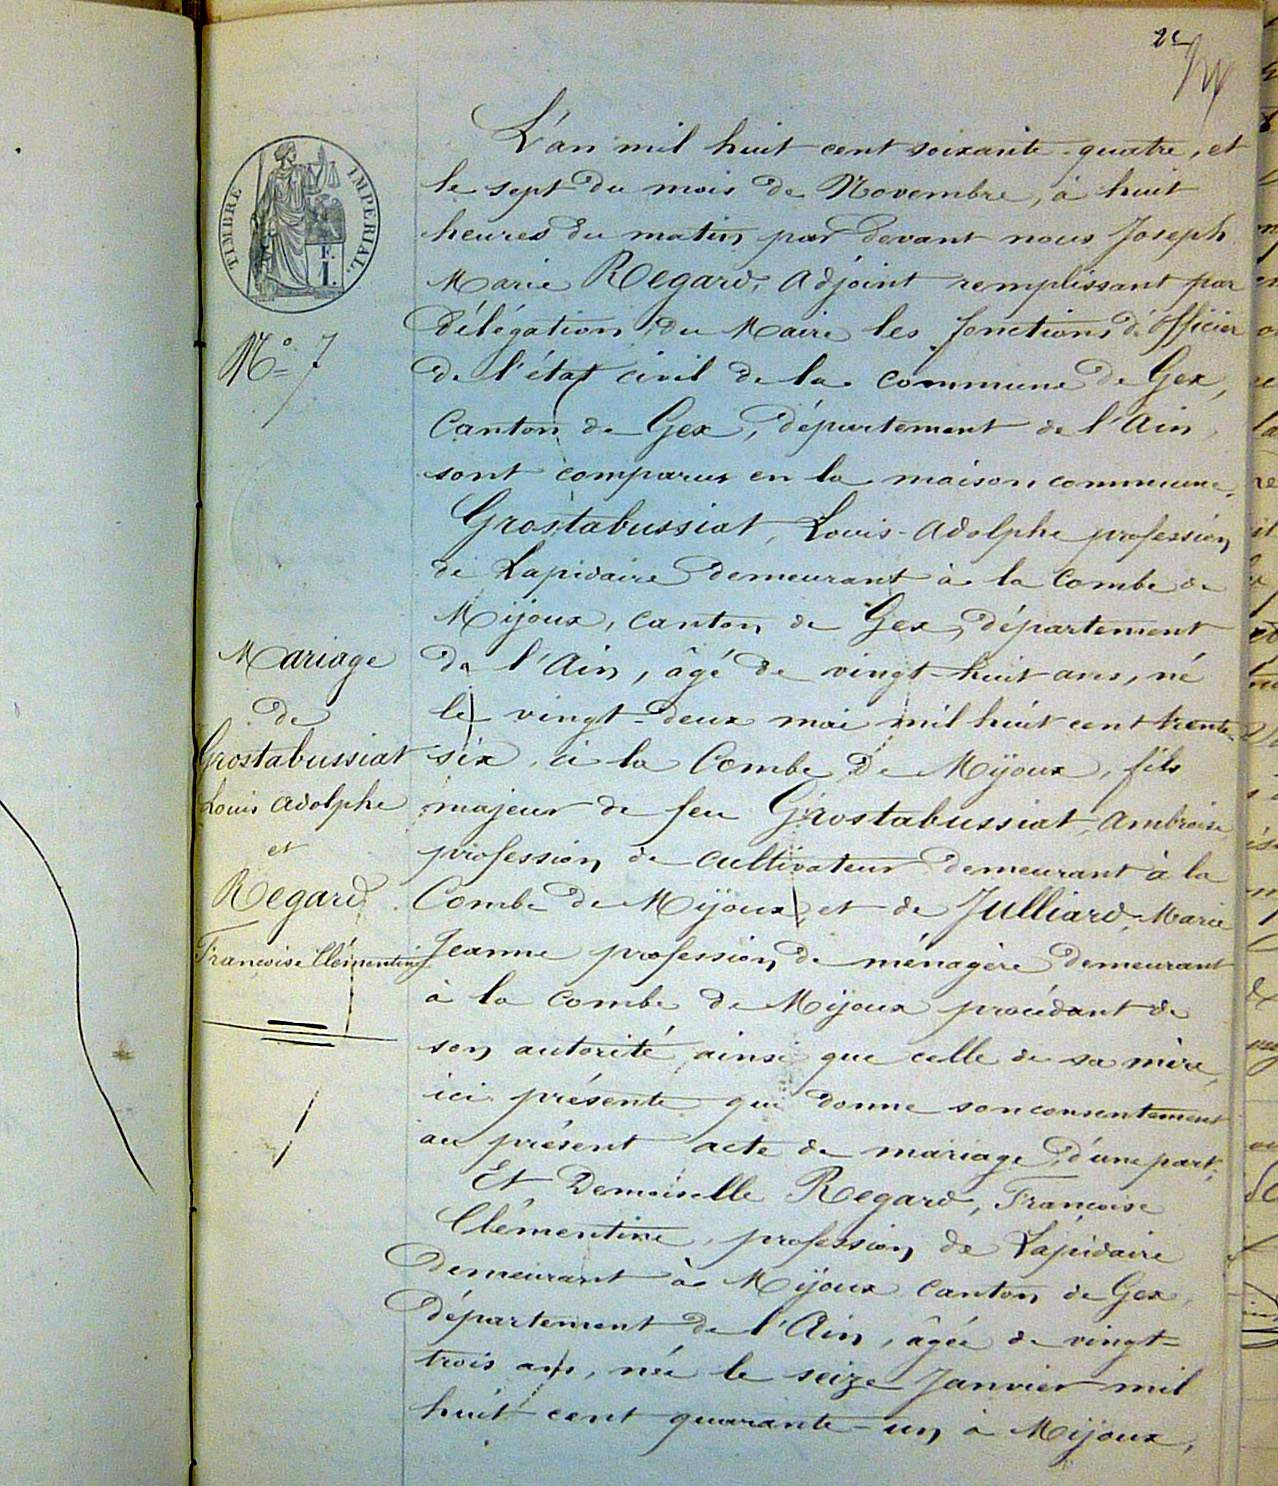 2e
TIMBRE IMPÉRIAL.
F.
1.
N° 7
Mariage
de
Grostabussiat
Louis Adolphe
et
Regard
Françoise Clémentine
L'an mil huit cent soixante-quatre, et
le sept du mois de Novembre, à huit
heures du matin par devant nous Joseph
Marie Regard, adjoint remplissant par
délégation du Maire les fonctions d'officier
de l'état civil de la commune de Gex,
Canton de Gex, département de l'Ain,
sont comparus en la maison commune.
Grostabussiat, Louis-Adolphe profession
de Lapidaire demeurant à la combe de
Mijoux, canton de Gex, département
de l'Ain, âgé de vingt-huit ans, né
le vingt-deux mai mil huit cent trente-
six, à la Combe de Mijoux, fils
majeur de feu Grostabussiat, Ambroise
profession de cultivateur demeurant à la
Combe de Mijoux, et de Julliard, Marie
Jeanne profession de ménagère demeurant
à la combe de Mijoux procédant de
son autorité ainsi que celle de sa mère,
ici présente qui donne son consentement
au présent acte de mariage, d'une part,
Et Demoiselle Regard, Françoise
Clémentine, profession de Lapidaire
demeurant à Mijoux canton de Gex,
département de l'Ain, âgée de vingt-
trois ans, née le seize Janvier mil
huit cent quarante-un à Mijoux,